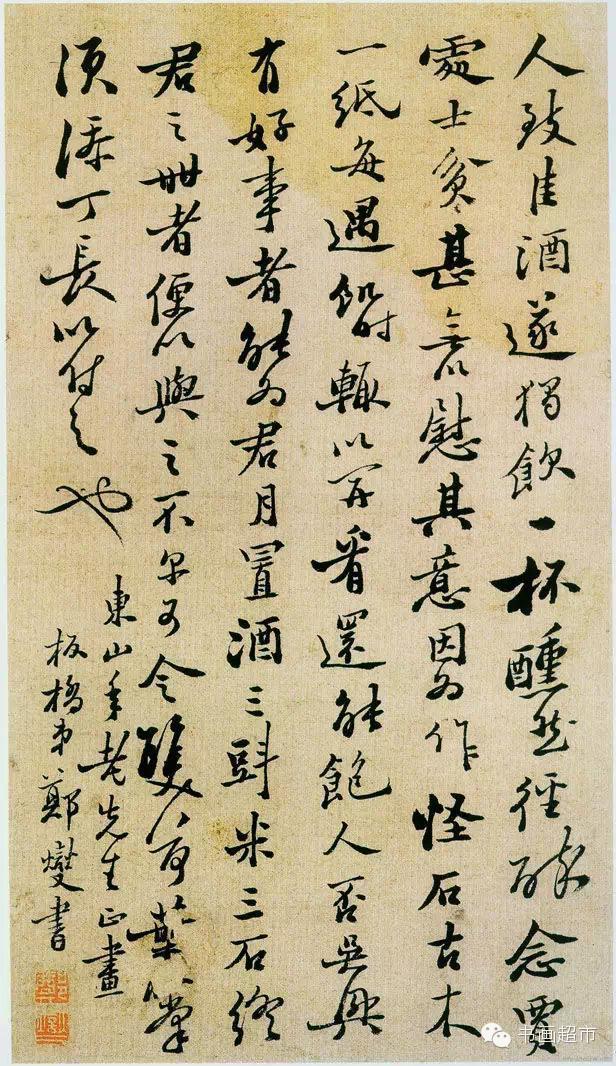 人致佳酒遂獨飲一杯醺然徑醉念賈
處士貧甚無以慰其意因為作怪石古木
一紙每遇飢時輒以開看還能飽人否吳興
有好事者能為君月置酒三㪷米三石終
君之世者便以與之不尔可令雙荷葉掌
須添丁長以付之也
東山年老先生正畫
板橋弟鄭燮書
书画超市